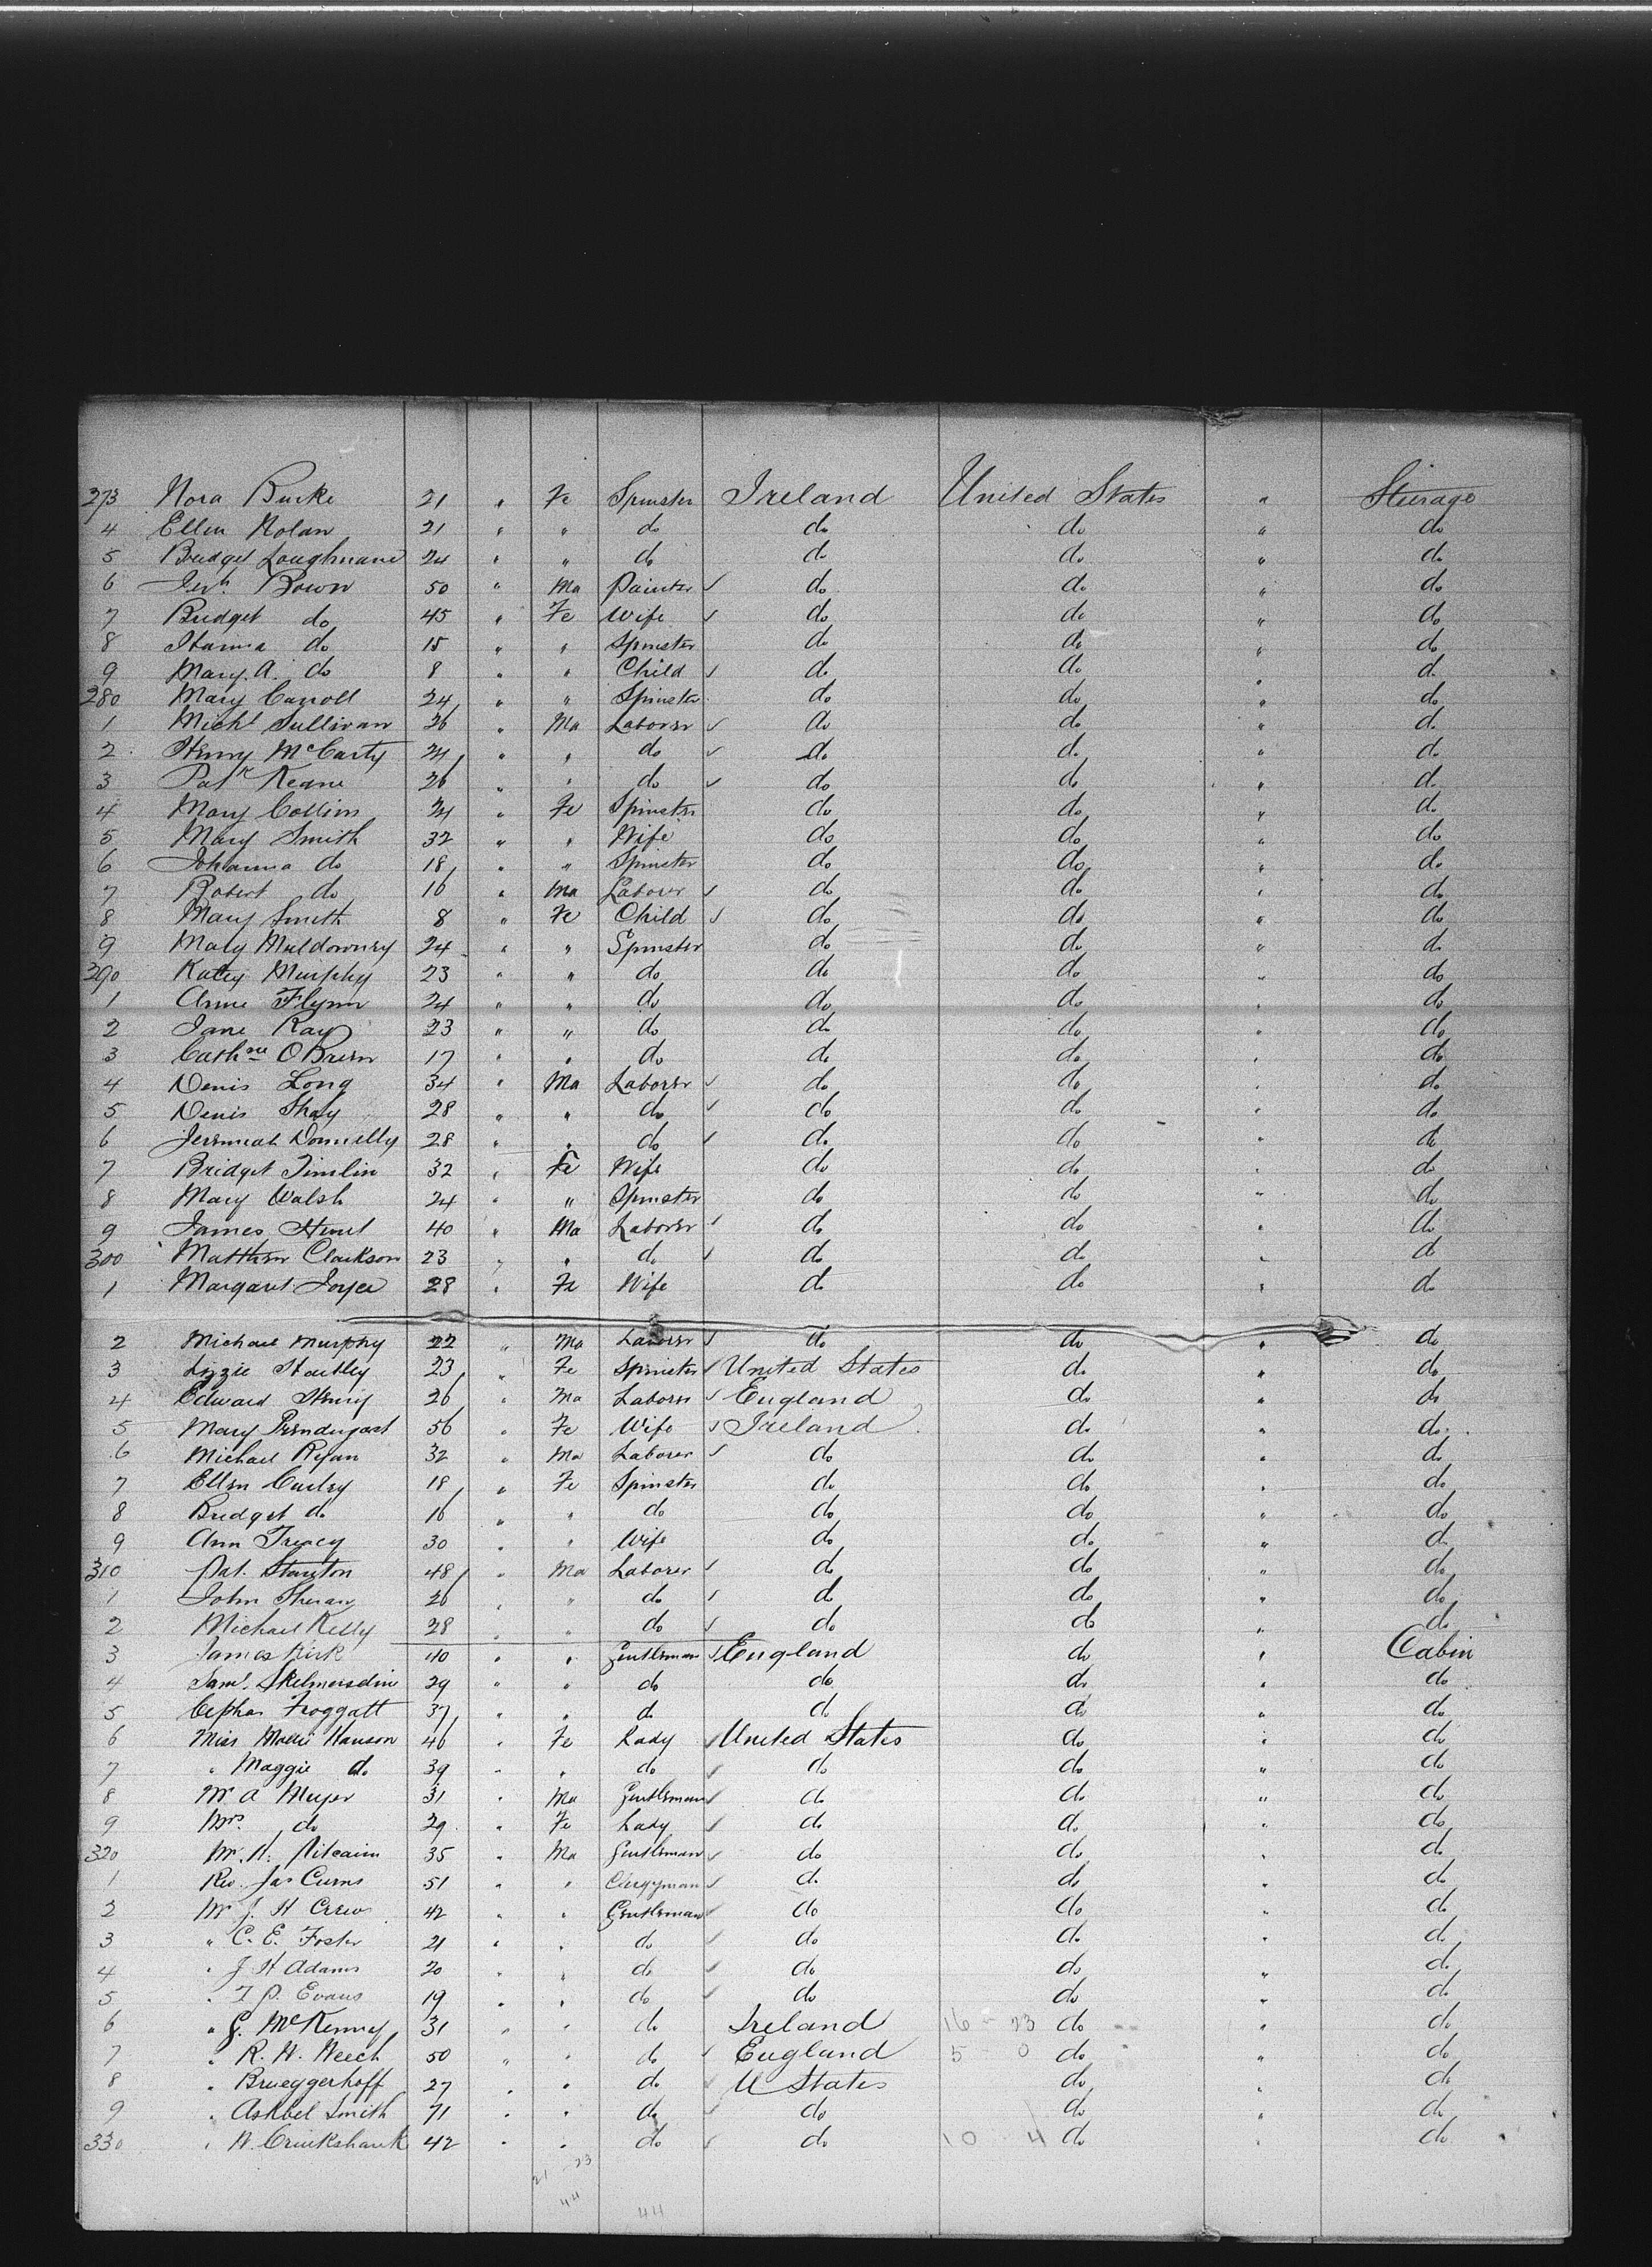 273 Nora Burke 21 " Fe Spinster Ireland United States " Steerage
4 Ellen Nolan 21 " " do do do " do
5 Bridget Loughnane 24 " " do do do " do
6 Jerh. Bown 50 " Ma Painter ✓ do do " do
7 Bridget do 45 " Fe Wife ✓ do do " do
8 Hanna do 15 " " Spinster do do " do
9 Mary. A. do 8 " " Child ✓ do do " do
280 Mary Carroll 24 " " Spinster do do " do
1 Michl Sullivan 26 " Ma Laborer ✓ do do " do
2 Henry McCarty 24 " " do ✓ do do " do
3 Patk Keane 26 " " do ✓ do do " do
4 Mary Collins 24 " Fe Spinster do do " do
5 Mary Smith 32 " " Wife do do " do
6 Johanna do 18 " " Spinster do do " do
7 Robert do 16 " Ma Laborer ✓ do do " do
8 Mary Smith 8 " Fe Child ✓ do do " do
9 Mary Muldowney 24 " " Spinster do do " do
290 Katey Murphy 23 " " do do do " do
1 Anne Flynn 24 " " do do do " do
2 Jane Ray 23 " " do do do " do
3 Cathne OBrien 17 " " do do do " do
4 Denis Long 34 " Ma Laborer ✓ do do " do
5 Denis Shay 28 " " do ✓ do do " do
6 Jeremiah Donnelly 28 " " do ✓ do do " do
7 Bridget Timlin 32 " Fe Wife do do " do
8 Mary Walsh 24 " " Spinster do do " do
9 James Hunt 40 " Ma Laborer ✓ do do " do
300 Matthew Clarkson 23 " " do ✓ do do " do
1 Margaret Joyce 28 " Fe Wife do do " do
2 Michael Murphy 22 " Ma Laborer ✓ do do " do
3 Lizzie 23 " Fe Spinster ✓ United States do " do
4 Edward Henry 26 " Ma Laborer ✓ England do " do
5 Mary Prendergast 56 " Fe Wife ✓ Ireland do " do
6 Michael Ryan 32 " Ma Laborer ✓ do do " do
7 Ellen Curley 18 " Fe Spinster do do " do
8 Bridget do 16 " " do do do " do
9 Ann Treacy 30 " " Wife do do " do
310 Pat. Stanton 48 " Ma Laborer ✓ do do " do
1 John 26 " " do ✓ do do " do
2 Michael Kelly 28 " " do ✓ do do " do
3 James Kirk 40 " " Gentleman ✓ England do " Cabin
4 Saml. Skelmersdine 29 " " do do do " do
5 Cephas Froggatt 37 " " do do do " do
6 Miss Mollie Hanson 46 " Fe Lady ✓ United States do " do
7 " Maggie do 39 " " do ✓ do do " do
8 Mr A Meyer 31 " Ma Gentleman ✓ do do " do
9 Mrs. do 29 " Fe Lady ✓ do do " do
320 Mr. N. Pitcairn 35 " Ma Gentleman ✓ do do " do
1 Rev. Jas Curns 51 " " Clergyman ✓ do do " do
2 Mr J. H Crew 42 " " Gentleman ✓ do do " do
3 " C. E. Foster 21 " " do ✓ do do " do
4 " J. H Adams 20 " " do ✓ do do " do
5 " T. P. Evans 19 " " do ✓ do do " do
6 " G. McKenney 31 " " do Ireland 16 - 23 do " do
7 " R. H. Neech 50 " " do ✓ England 5 - 0 do " do
8 " Brueggerhoff 27 " " do ✓ U States do " do
9 " Ashbel Smith 71 " " do ✓ do do " do
330 " H. Cruikshank 42 " " do ✓ do 10 4 do " do
21 - 23
44 44